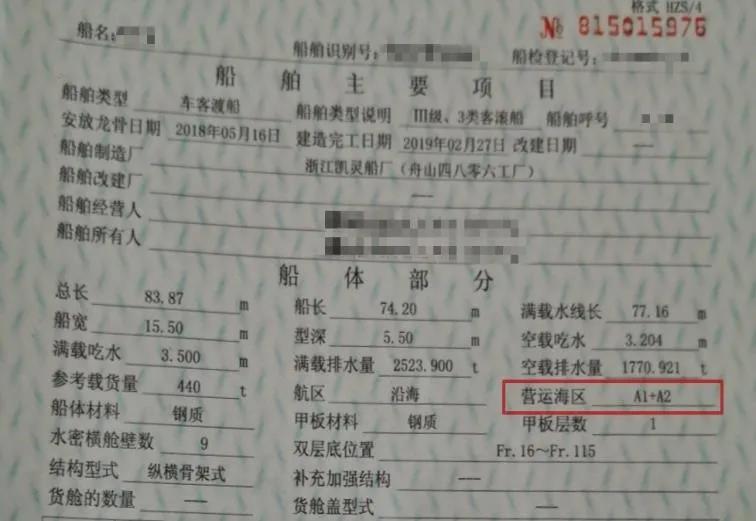 格式 HZS/4
№ 815015976
船名:
船舶识别号: 船检登记号:
船舶主要项目
船舶类型 车客渡船 船舶类型说明 III级、3类客滚船 船舶呼号
安放龙骨日期 2018年05月16日 建造完工日期 2019年02月27日 改建日期 —
船舶制造厂 浙江凯灵船厂(舟山四八零六工厂)
船舶改建厂 —
船舶经营人
船舶所有人
船体部分
总长 83.87 m 船长 74.20 m 满载水线长 77.16 m
船宽 15.50 m 型深 5.50 m 空载吃水 3.204 m
满载吃水 3.500 m 满载排水量 2523.900 t 空载排水量 1770.921 t
参考载货量 440 t 航区 沿海 营运海区 A1+A2
船体材料 钢质 甲板材料 钢质 甲板层数 1
水密横舱壁数 9 双层底位置 Fr.16~Fr.115
结构型式 纵横骨架式 补充加强结构 —
货舱的数量 — 货舱盖型式 —